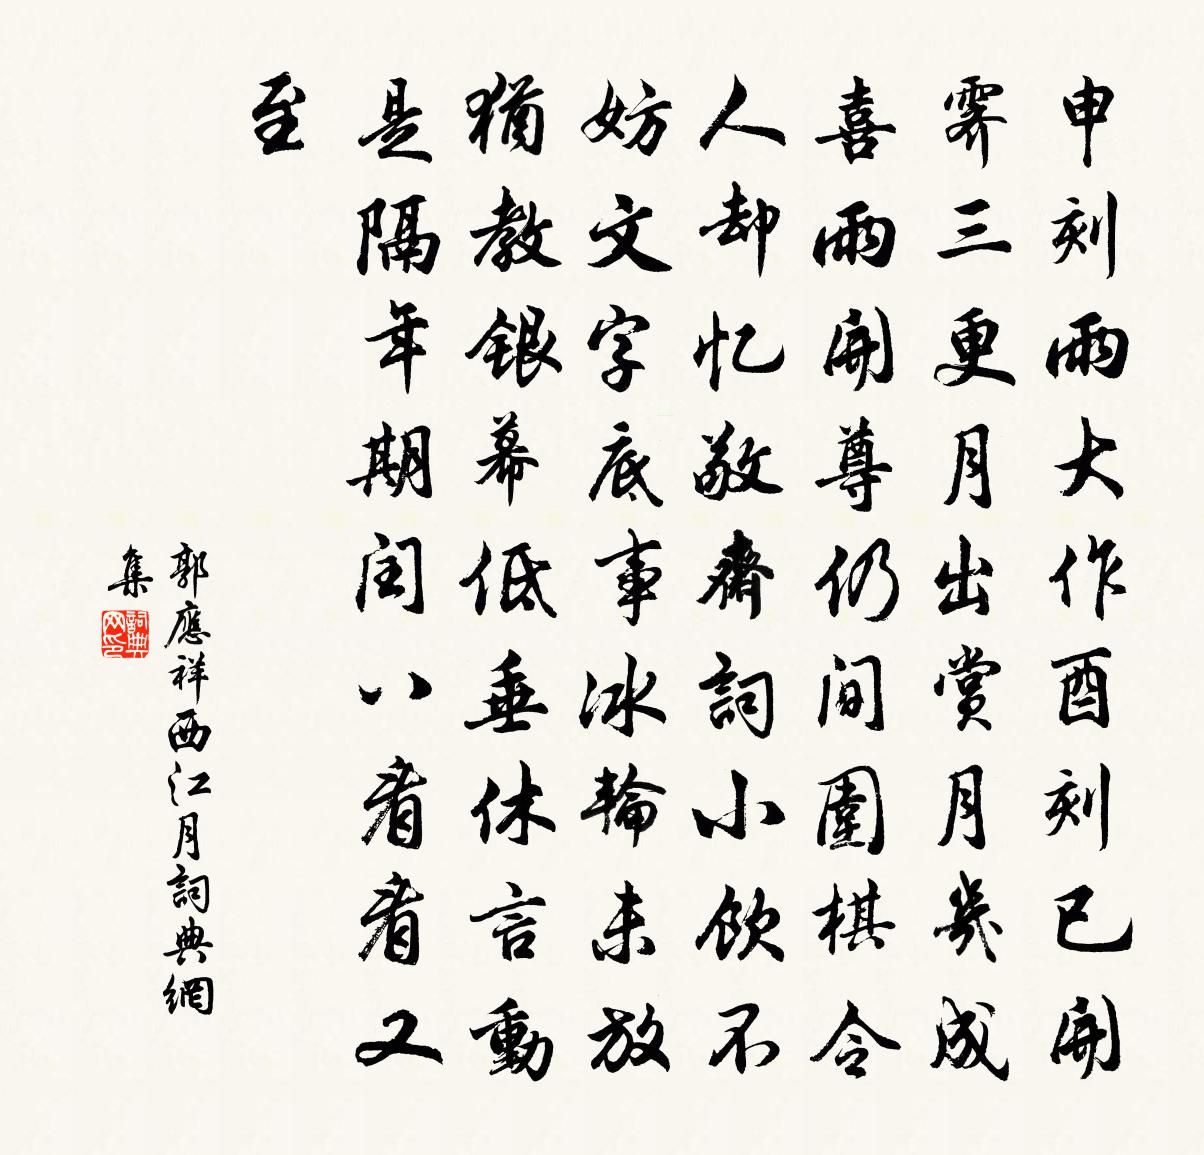 申刻雨大作酉刻已開
霽三更月出賞月幾成
喜雨開尊仍間圍棋令
人却忆敬齋詞小飲不
妨文字底事冰輪未放
猶教銀幕低垂休言動
是隔年期閏八看看又
至
郭應祥西江月詞典網
集
詞典
网印